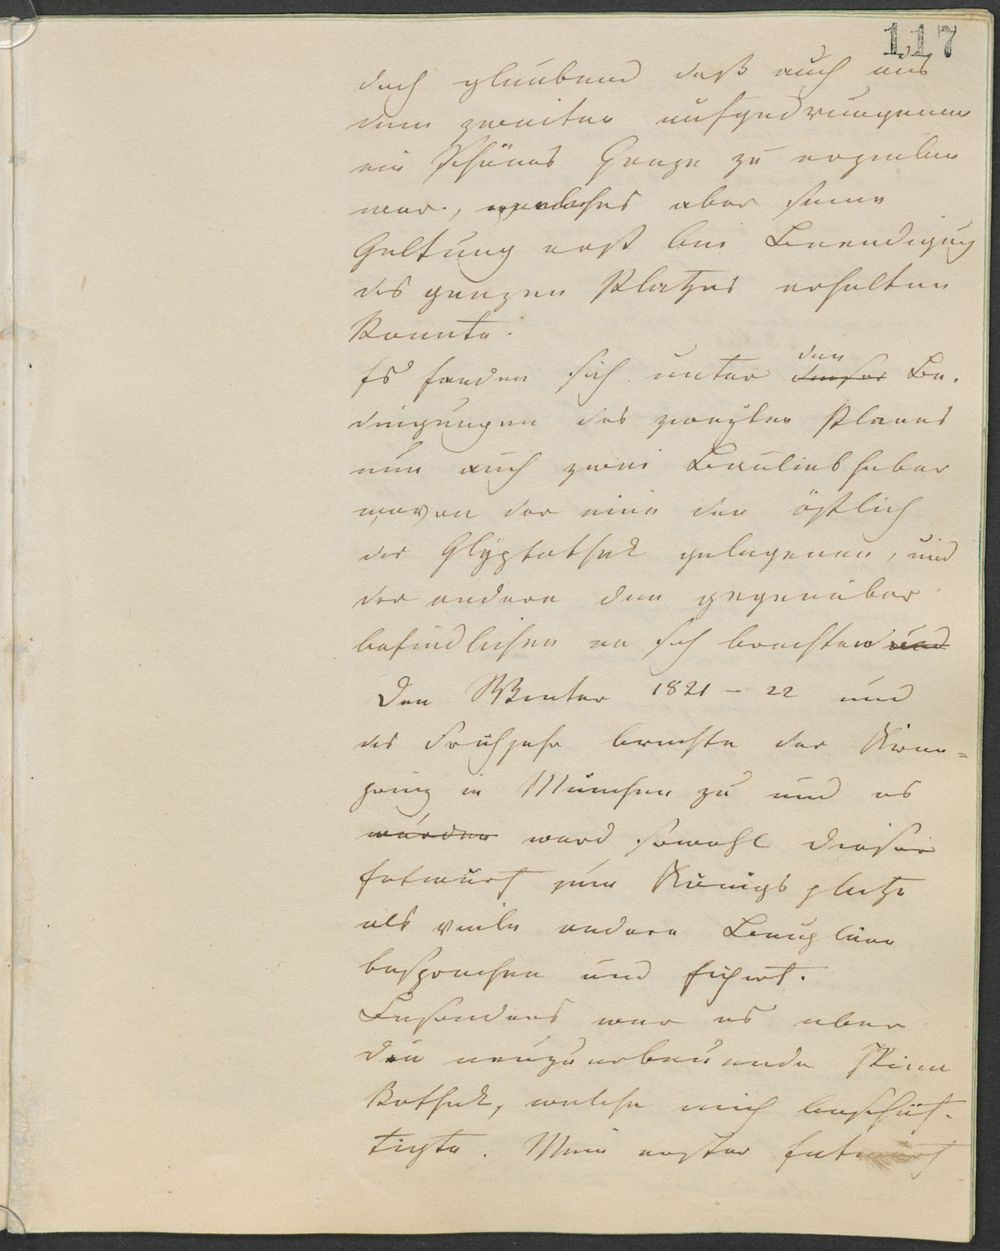 117
doch glaubend daß auch aus
dem zweiten aufgedrungenen
ein schönes Ganze zu erzielen
war, welches aber seine
Geltung erst bei Beendigung
des ganzen Platzes erhalten
konnte.
Es fanden sich unter dieser den Be-
dingungen des zweyten Planes
nun auch zwei Bauliebhaber
wovon der eine den östlich
der Glyptothek gelegenen, und
der andere den gegenüber
befindlichen an sich brachten und
Den Winter 1821 – 22 und
das Frühjahr brachte der Kron=
prinz in München zu und es
wurden ward sowohl dieser
Entwurf zum Königsplatze
als viele andere Baupläne
besprochen und fixirt.
Besonders war es aber
die neuzuerbauende Pina
kothek, welche mich beschäf-
tigte. Mein erster Entwurf